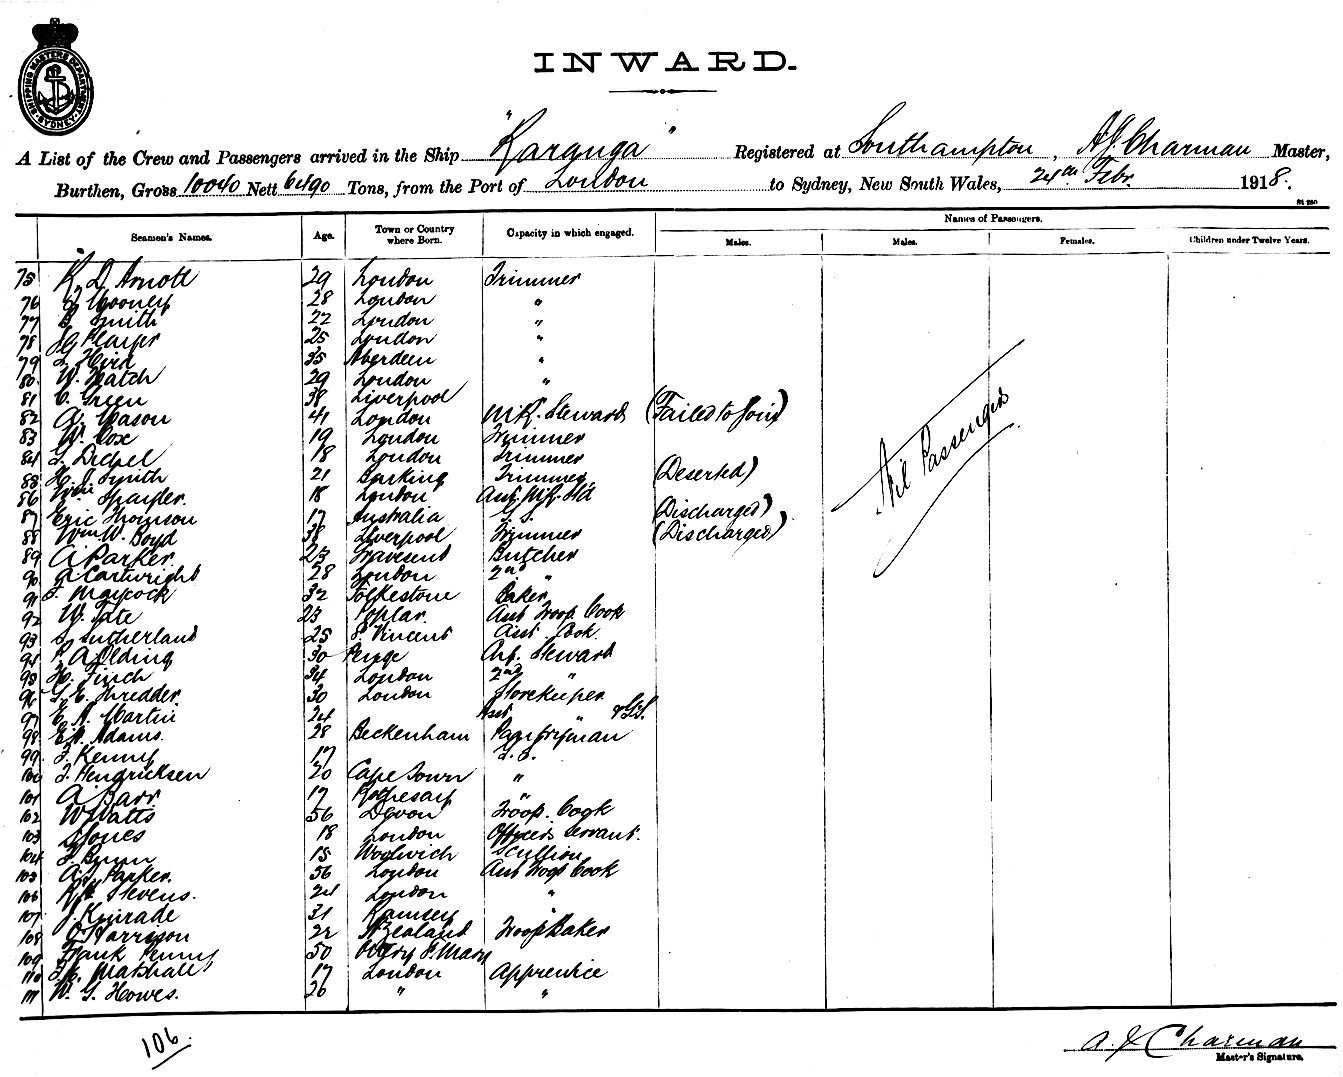 SHIPPING MASTER'S DEPARTMENT SYDNEY
INWARD.
A List of the Crew and Passengers arrived in the Ship "Karanga" Registered at Southampton, A.J. Charman Master,
Burthen, Gross 10040 Nett 6490 Tons, from the Port of London to Sydney, New South Wales, 24th Febr. 1918.
Names of Passengers.
Seamen's Names. Age. Town or Country where Born. Capacity in which engaged. Males. Males. Females. Children under Twelve Years.
75 K. D. Arnott 29 London Trimmer
76 Mooney 28 London "
77 Smith 22 London "
78 25 London "
79 Hird 35 Aberdeen "
80 W. Hatch 29 London "
81 C. Green 38 Liverpool
82 G. Mason 41 London Steward (Failed to Join)
83 W. Cox 19 London Trimmer
84 18 London Trimmer
85 H. J. Smith 21 Barking Trimmer (Deserted)
86 Wm 18 London
87 Eric Thomson 17 Australia G.S. (Discharged)
88 Wm W. Boyd 38 Liverpool Trimmer (Discharged)
89 A Parker 23 Gravesend Butcher
90 Cartwright 28 London 2nd "
91 Maycock 32 Folkestone Baker
92 W. Tate 23 Poplar. Asst Troop Cook
93 S Sutherland 25 St Vincent Asst. Cook.
94 A Olding 30 Penge Steward
95 H. Finch 34 London 2nd "
96 G. E. Thredder. 30 London Storekeeper
97 E. A. Martin 24 Asst " & G.S.
98 Adams. 28 Beckenham Pantryman
99 Kenny 17 G.S.
100 J. Hendricksen 20 Cape Town "
101 A Barr 17 Rothesay "
102 W Watts 56 Devon Troop. Cook
103 Jones 18 London Officers Servant.
104 15 Woolwich Scullion
105 A. J. Parker. 36 London Asst Troop Cook
106 Stevens. 24 London "
107 J. Kinrade 31 Ramsey "
108 Harrison 22 N Zealand Troop Baker
109 Frank Penny 50 Ottery St. Mary
110 Marshall 17 London Apprentice
111 W. G. Howes. 26 " "
Nil Passengers
106.
A. J. Charman
Master's Signature.